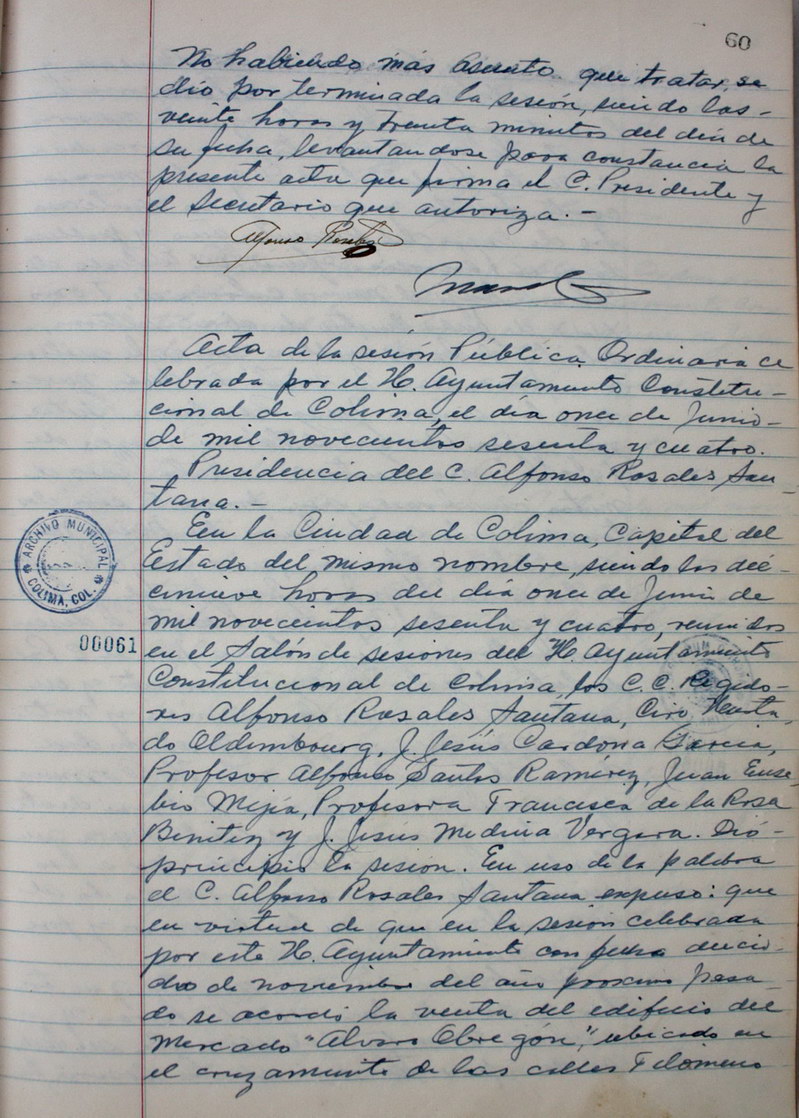 60
No habiendo más asunto que tratar, se
dio por terminada la sesión, siendo las -
veinte horas y treinta minutos del día de
su fecha, levantandose para constancia la
presente acta que firma el C. Presidente y
el Secretario que autoriza. -
Alfonso Rosales
Acta de la sesión Pública Ordinaria ce
lebrada por el H. Ayuntamiento Constitu -
cional de Colima, el día once de Junio -
de mil novecientos sesenta y cuatro.
Presidencia del C. Alfonso Rosales San -
tana. -
En la Ciudad de Colima, Capital del
Estado del mismo nombre, siendo las die -
cinueve horas del día once de Junio de
mil novecientos sesenta y cuatro, reunidos
en el Salón de sesiones del H. Ayuntamiento
Constitucional de Colima, los C. C. Regido -
res Alfonso Rosales Santana, Ciro Hurta -
do Oldembourg, J. Jesús Cardona Garcia,
Profesor Alfonso Santos Ramírez, Juan Euse -
bio Mejía, Profesora Francisca de la Rosa
Benitez y J. Jesús Medina Vergara. Dió -
principio la sesión. En uso de la palabra
el C. Alfonso Rosales Santana expuso: que
en virtud de que en la sesión celebrada
por este H. Ayuntamiento con fecha diecio -
cho de noviembre del año proximo pasa -
do se acordó la venta del edificio del
Mercado "Alvaro Obregón", ubicado en
el cruzamiento de las calles Filomeno
ARCHIVO MUNICIPAL
COLIMA, COL.
00061